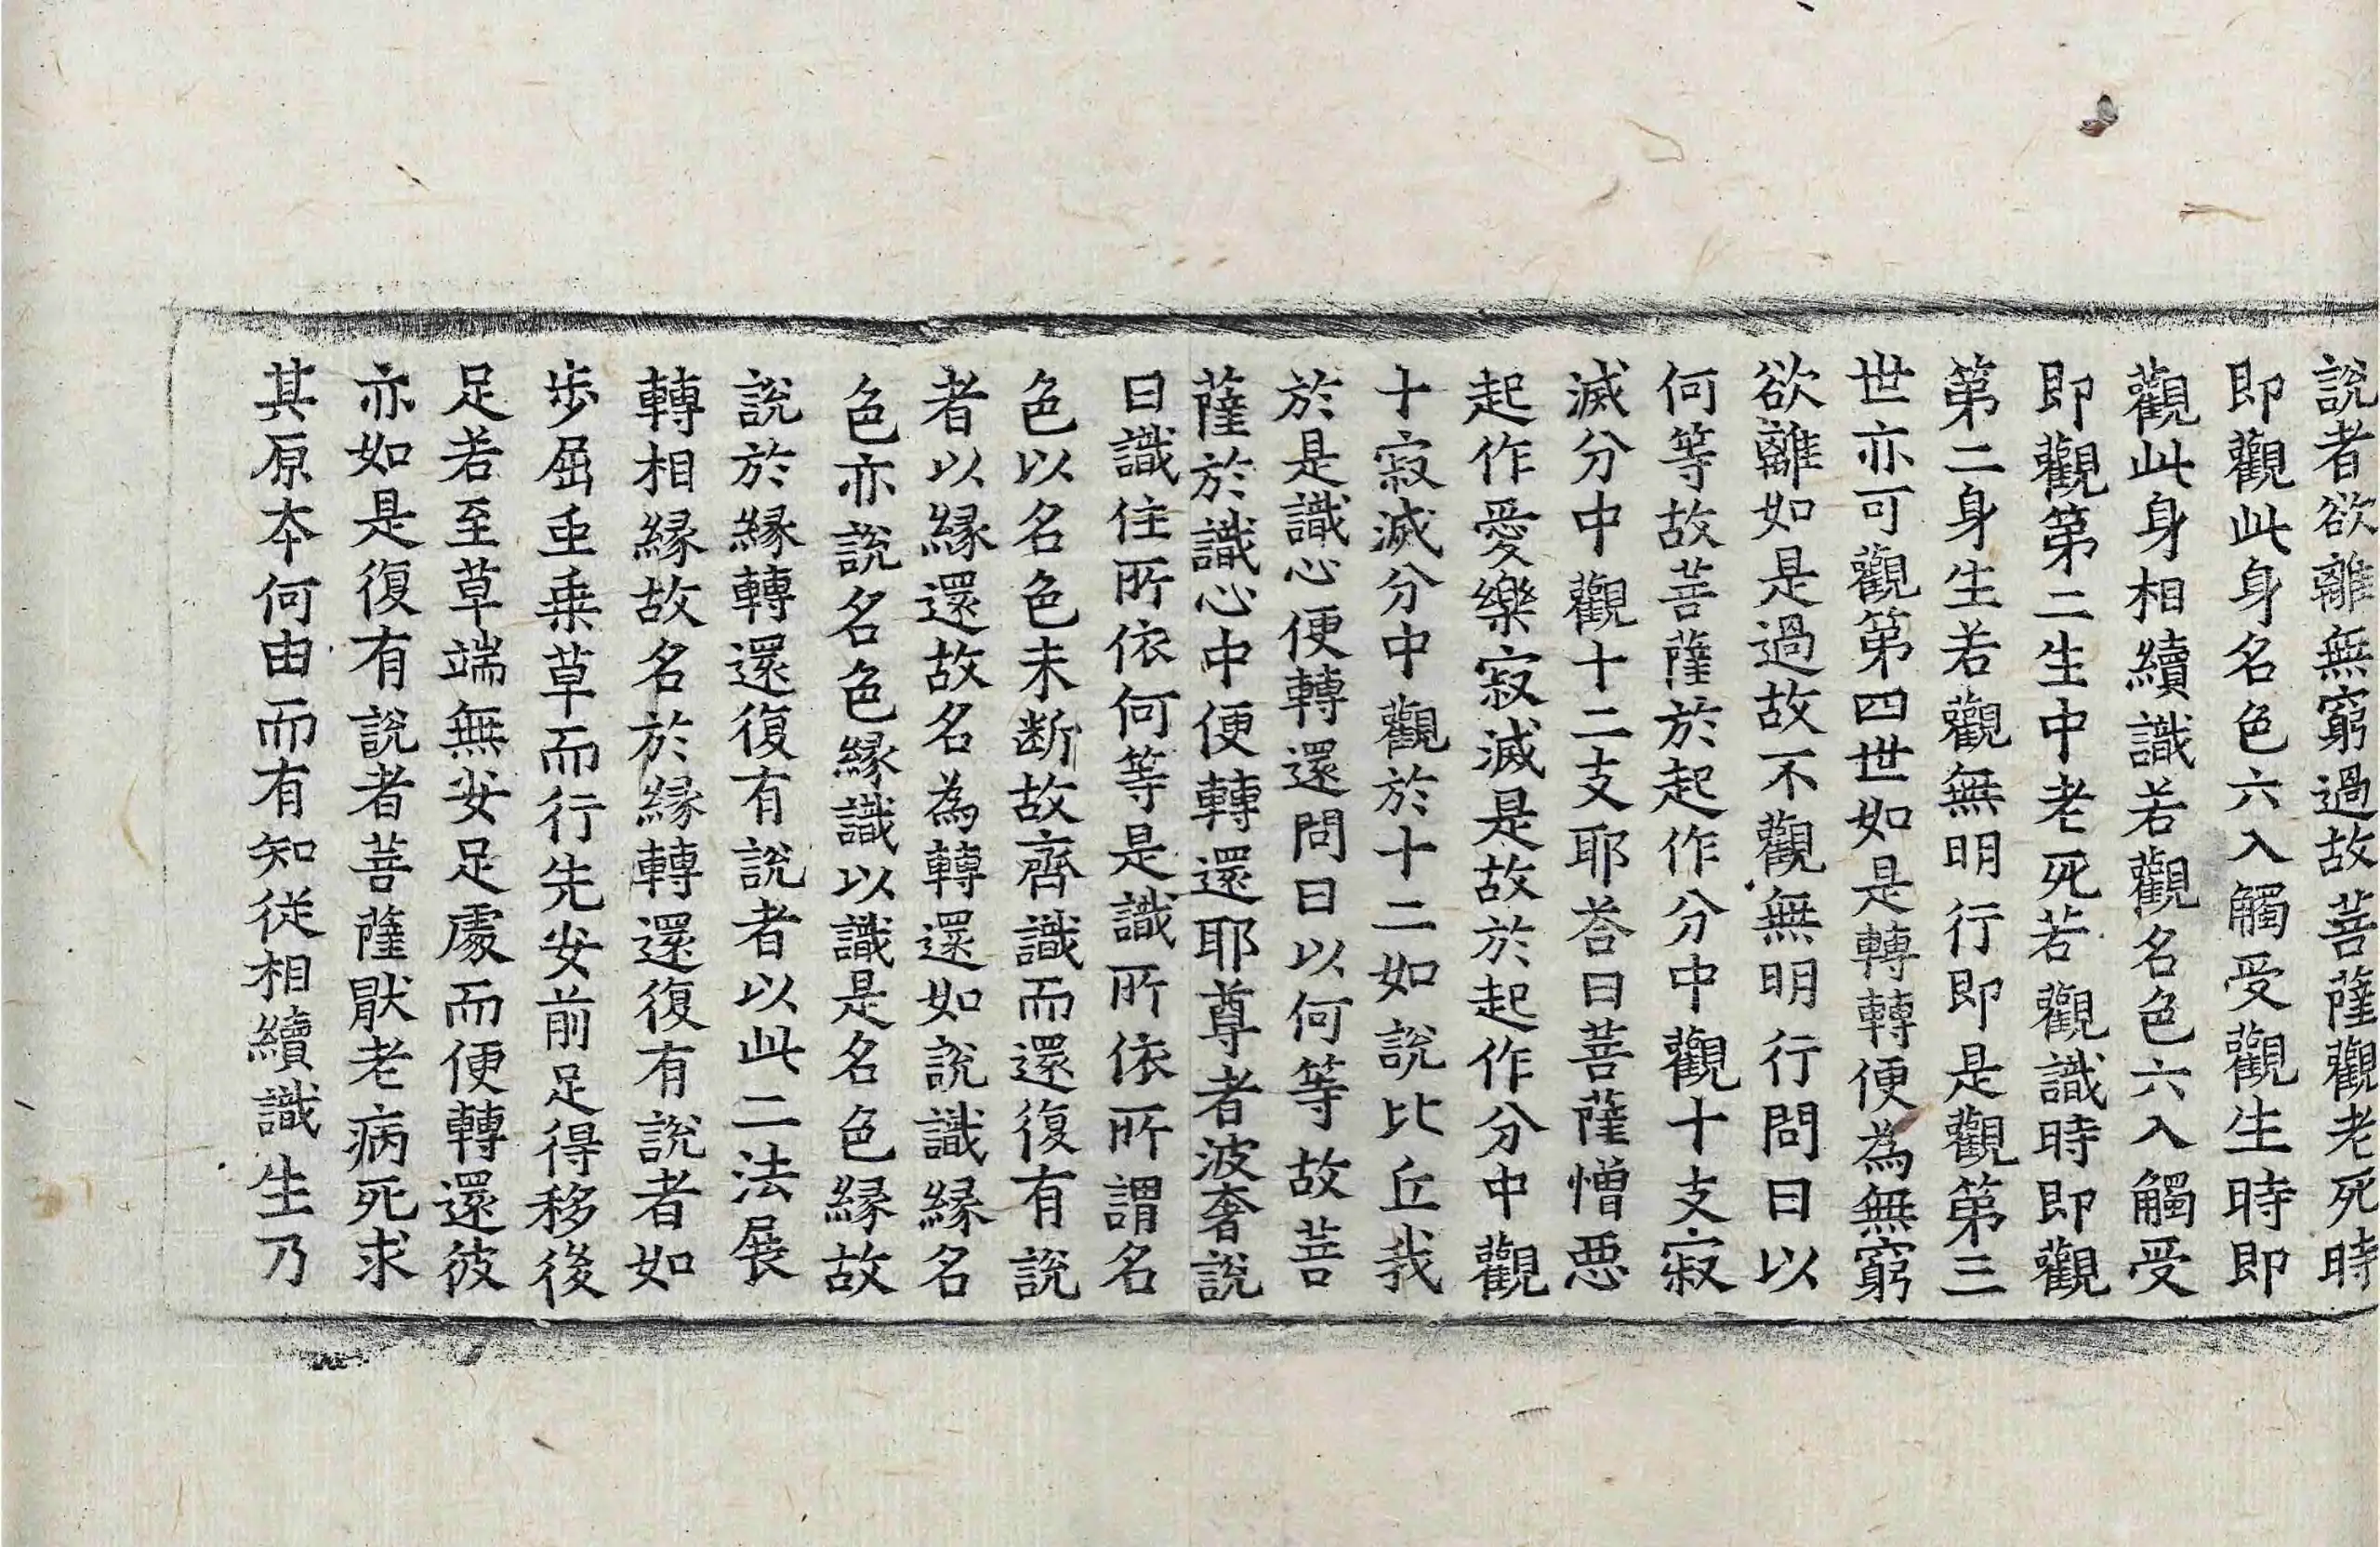 說者欲離無窮過故菩薩觀老死時
即觀此身名色六入觸受觀生時即
觀此身相續識若觀名色六入觸受
即觀第二生中老死若觀識時即觀
第二身生若觀無明行即是觀第三
世亦可觀第四世如是轉轉便為無窮
欲離如是過故不觀無明行問曰以
何等故菩薩於起作分中觀十支寂
滅分中觀十二支耶荅曰菩薩憎惡
起作愛樂寂滅是故於起作分中觀
十寂滅分中觀於十二如說比丘我
於是識心便轉還問曰以何等故菩
薩於識心中便轉還耶尊者波奢說
曰識住所依何等是識所依所謂名
色以名色未断故齊識而還復有說
者以緣還故名為轉還如說識緣名
色亦說名色緣識以識是名色緣故
說於緣轉還復有說者以此二法展
轉相緣故名於緣轉還復有說者如
步屈䖝乗草而行先安前足得移後
足若至草端無安足處而便轉還彼
亦如是復有說者菩薩猒老病死求
其原本何由而有知從相續識生乃